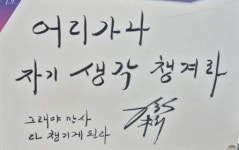 어리가나
자기 생각 챙겨라
그래야 만사
다 챙기게 된다